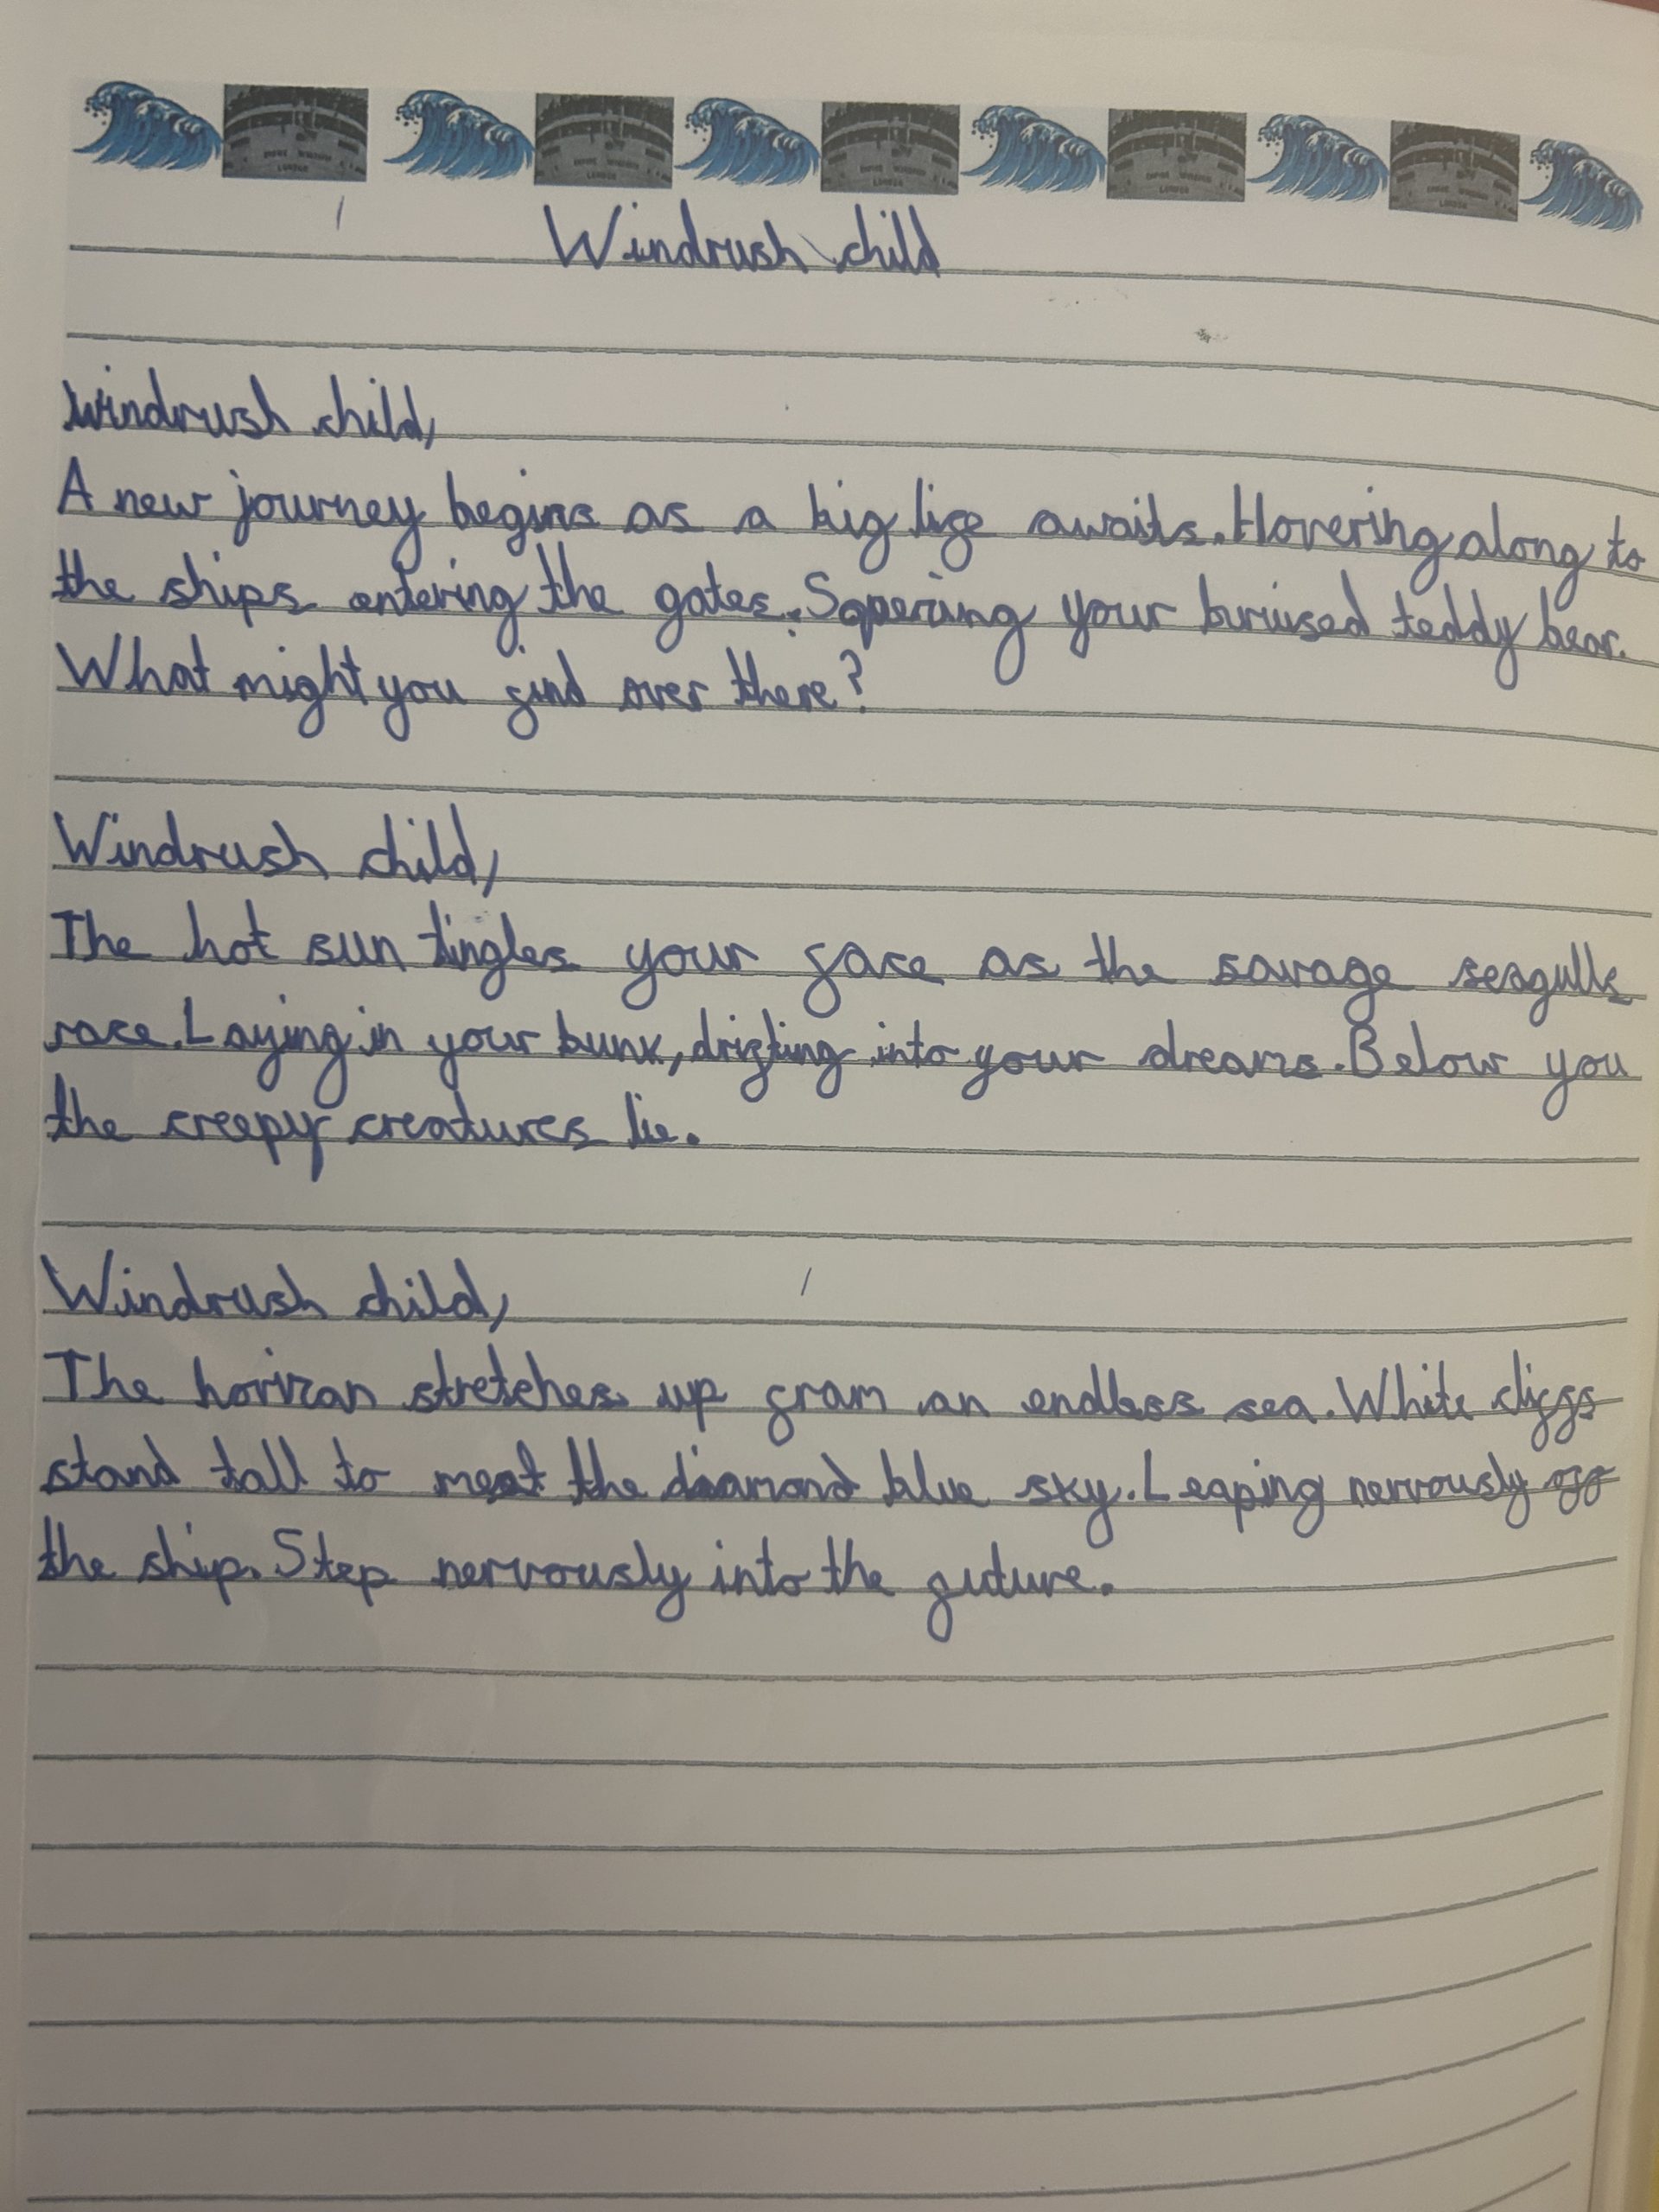 Windrush child
Windrush child,
A new journey begins as a big life awaits. Hovering along to
the ships entering the gates. Sqpering your buruised teddy bear.
What might you find over there?
Windrush child,
The hot sun tingles your face as the savage seagulls
race. Laying in your bunk, drifting into your dreams. Below you
the creepy creatures lie.
Windrush child,
The horizan stretches up from an endless sea. White cliffs
stand tall to meet the diamond blue sky. Leaping nervously off
the ship. Step nervously into the future.